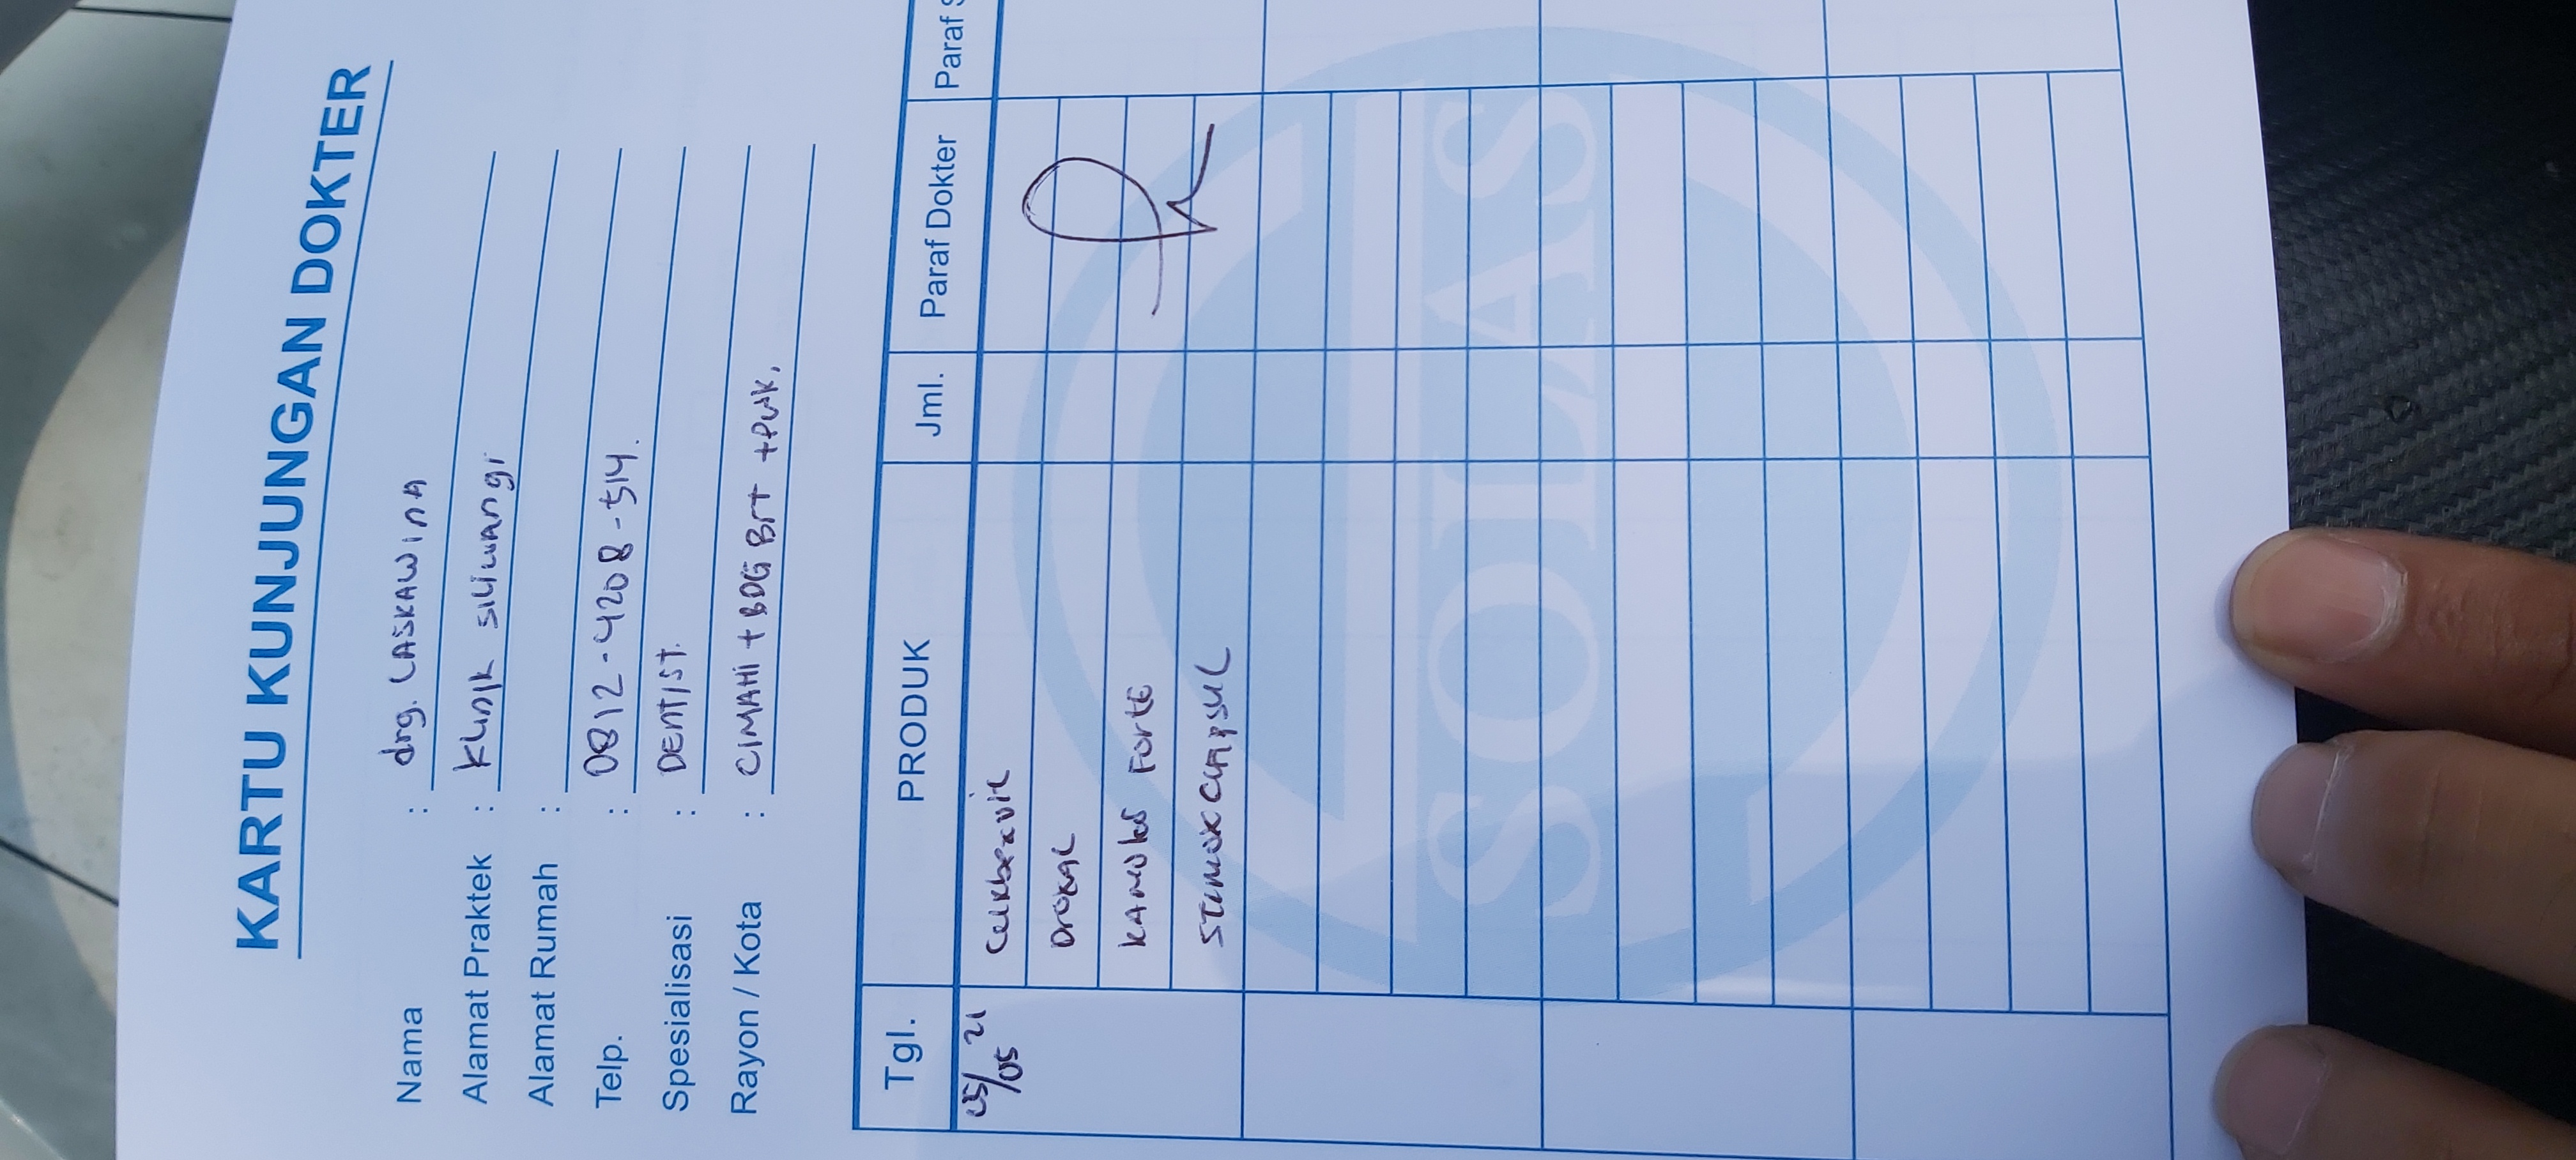 KARTU KUNJUNGAN DOKTER
Nama : drg. LASKAWINA
Alamat Praktek : Klinik siliwangi
Alamat Rumah :
Telp. : 0812-4208-514.
Spesialisasi : DENTIST.
Rayon / Kota : CIMAHI + BDG Brt + PWK.
Tgl. PRODUK Jml. Paraf Dokter Paraf S
05/05 21
Droxal
Forte
STIMOX CAPSUL
SOLAS